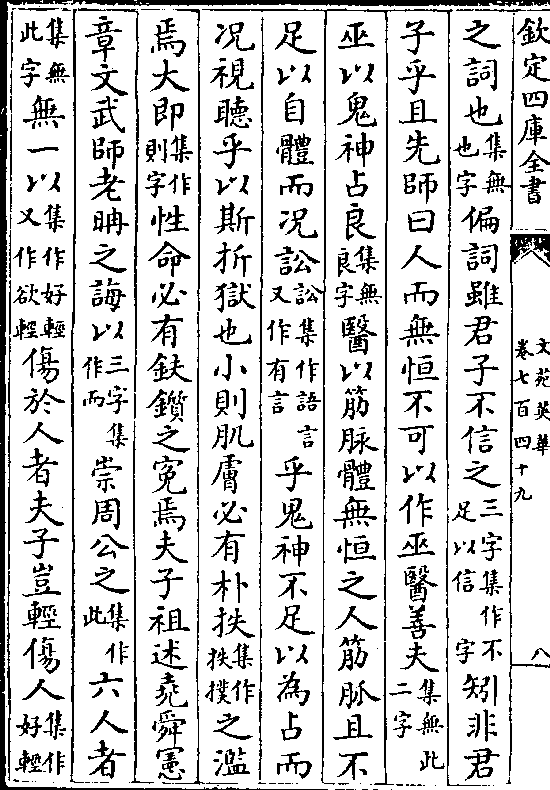 欽定四庫全書
文苑英華
卷七百四十九
八
之詞也集無也字偏詞雖君子不信之三字集作不足以信字矧非君
子乎且先師曰人而無恒不可以作巫醫善夫集無此二字
巫以鬼神占良集無良字醫以筋脉體無恒之人筋脈且不
足以自體而况訟訟集作語言又作有言乎鬼神不足以為占而
况視聽乎以斯折獄也小則肌膚必有朴抶集作抶撲之濫
焉大即集作則字性命必有鈇鑕之寃焉夫子祖述堯舜憲
章文武師老聃之誨以三字集作而崇周公之集作此六人者
集無此字無一以集作好輕又作欲輕傷於人者夫子豈輕傷人集作好輕